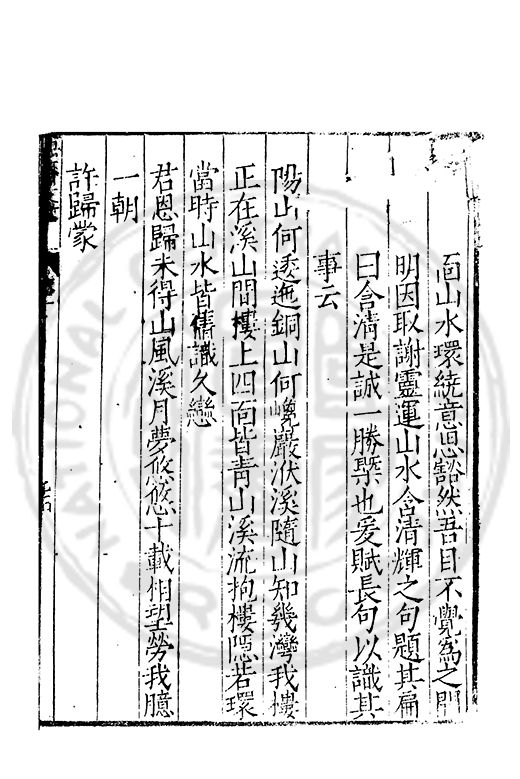 面山水環繞意思豁然吾目不覺為之開
明因取謝靈運山水含清輝之句題其扁
曰含清是誠一勝槩也爰賦長句以識其
事云
陽山何逶迤銅山何巉巖洑溪隨山知幾灣我樓
正在溪山間樓上四面皆青山溪流抱樓隠若環
當時山水皆情識久戀
君恩歸未得山風溪月夢悠悠十載相望勞我臆
一朝
許歸蒙